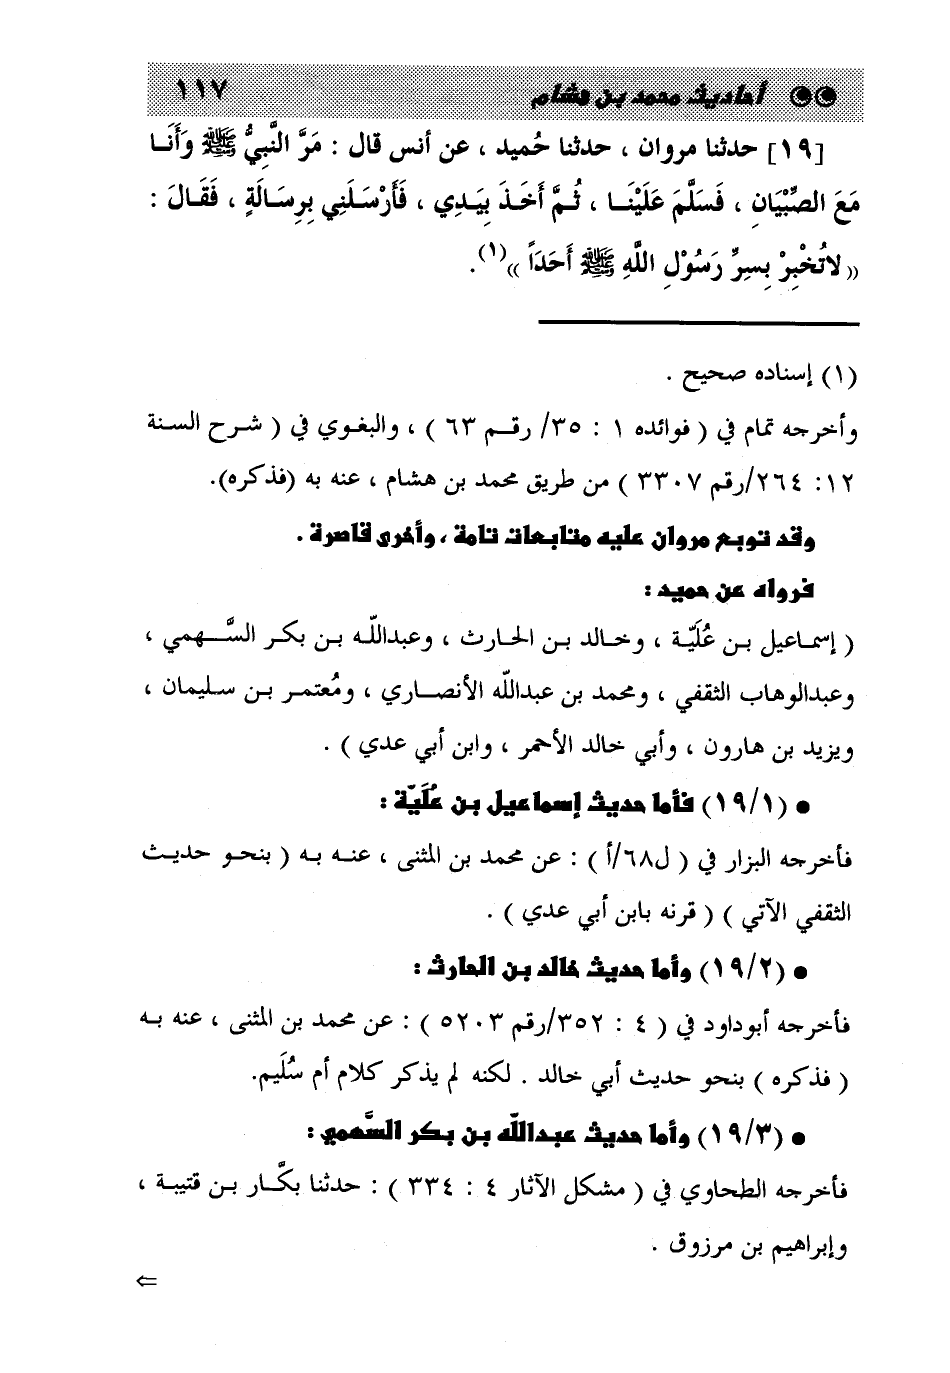 أحاديث محمد بن هشام ١١٧
[١٩] حدثنا مروان ، حدثنا حُميد ، عن أنس قال : مَرَّ النَّبِيُّ ﷺ وَأَنَا
مَعَ الصِّبْيَانِ ، فَسَلَّمَ عَلَيْنَا ، ثُمَّ أَخَذَ بِيَدِي ، فَأَرْسَلَنِي بِرِسَالَةٍ ، فَقَالَ :
(( لاتُخْبِرْ بِسِرِّ رَسُوْلِ اللَّهِ ﷺ أَحَدَاً ))(١).
(١) إسناده صحيح .
وأخرجه تمام في ( فوائده ١ : ٣٥/ رقم ٦٣ ) ، والبغوي في ( شرح السنة
١٢: ٢٦٤/رقم ٣٣٠٧ ) من طريق محمد بن هشام ، عنه به (فذكره).
وقد توبع مروان عليه متابعات تامة ، وأخرى قاصرة .
فرواه عن حميد :
( إسماعيل بن عُلَيّة ، وخالد بن الحارث ، وعبداللّه بن بكر السَّهمي ،
وعبدالوهاب الثقفي ، ومحمد بن عبداللّه الأنصاري ، ومُعتمر بن سليمان ،
ويزيد بن هارون ، وأبي خالد الأحمر ، وابن أبي عدي ) .
● (١٩/١) فأما حديث إسماعيل بن عُلَيّة :
فأخرجه البزار في ( ل٦٨/أ ) : عن محمد بن المثنى ، عنه به ( بنحو حديث
الثقفي الآتي ) ( قرنه بابن أبي عدي ) .
● (١٩/٢) وأما حديث خالد بن الحارث :
فأخرجه أبوداود في ( ٤ : ٣٥٢/رقم ٥٢٠٣ ) : عن محمد بن المثنى ، عنه به
( فذكره ) بنحو حديث أبي خالد . لكنه لم يذكر كلام أم سُلَيم.
● (١٩/٣) وأما حديث عبداللّه بن بكر السَّهمي :
فأخرجه الطحاوي في ( مشكل الآثار ٤ : ٣٣٤ ) : حدثنا بكَّار بن قتيبة ،
وإبراهيم بن مرزوق .
⇐